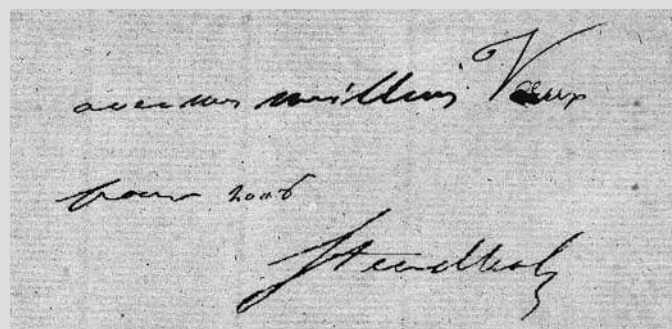 avec nos meilleurs Vœux
pour 2006
Stendhal